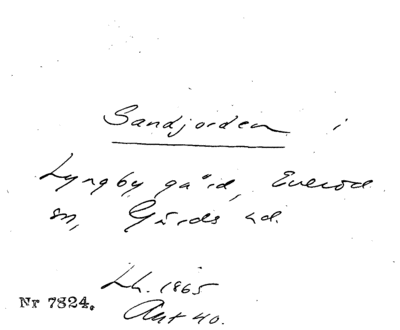 Sandjorden i
Lyngby gård, Everöd
sn, Gärds hd.
Lh. 1865
Akt 40.
Nr 7824.